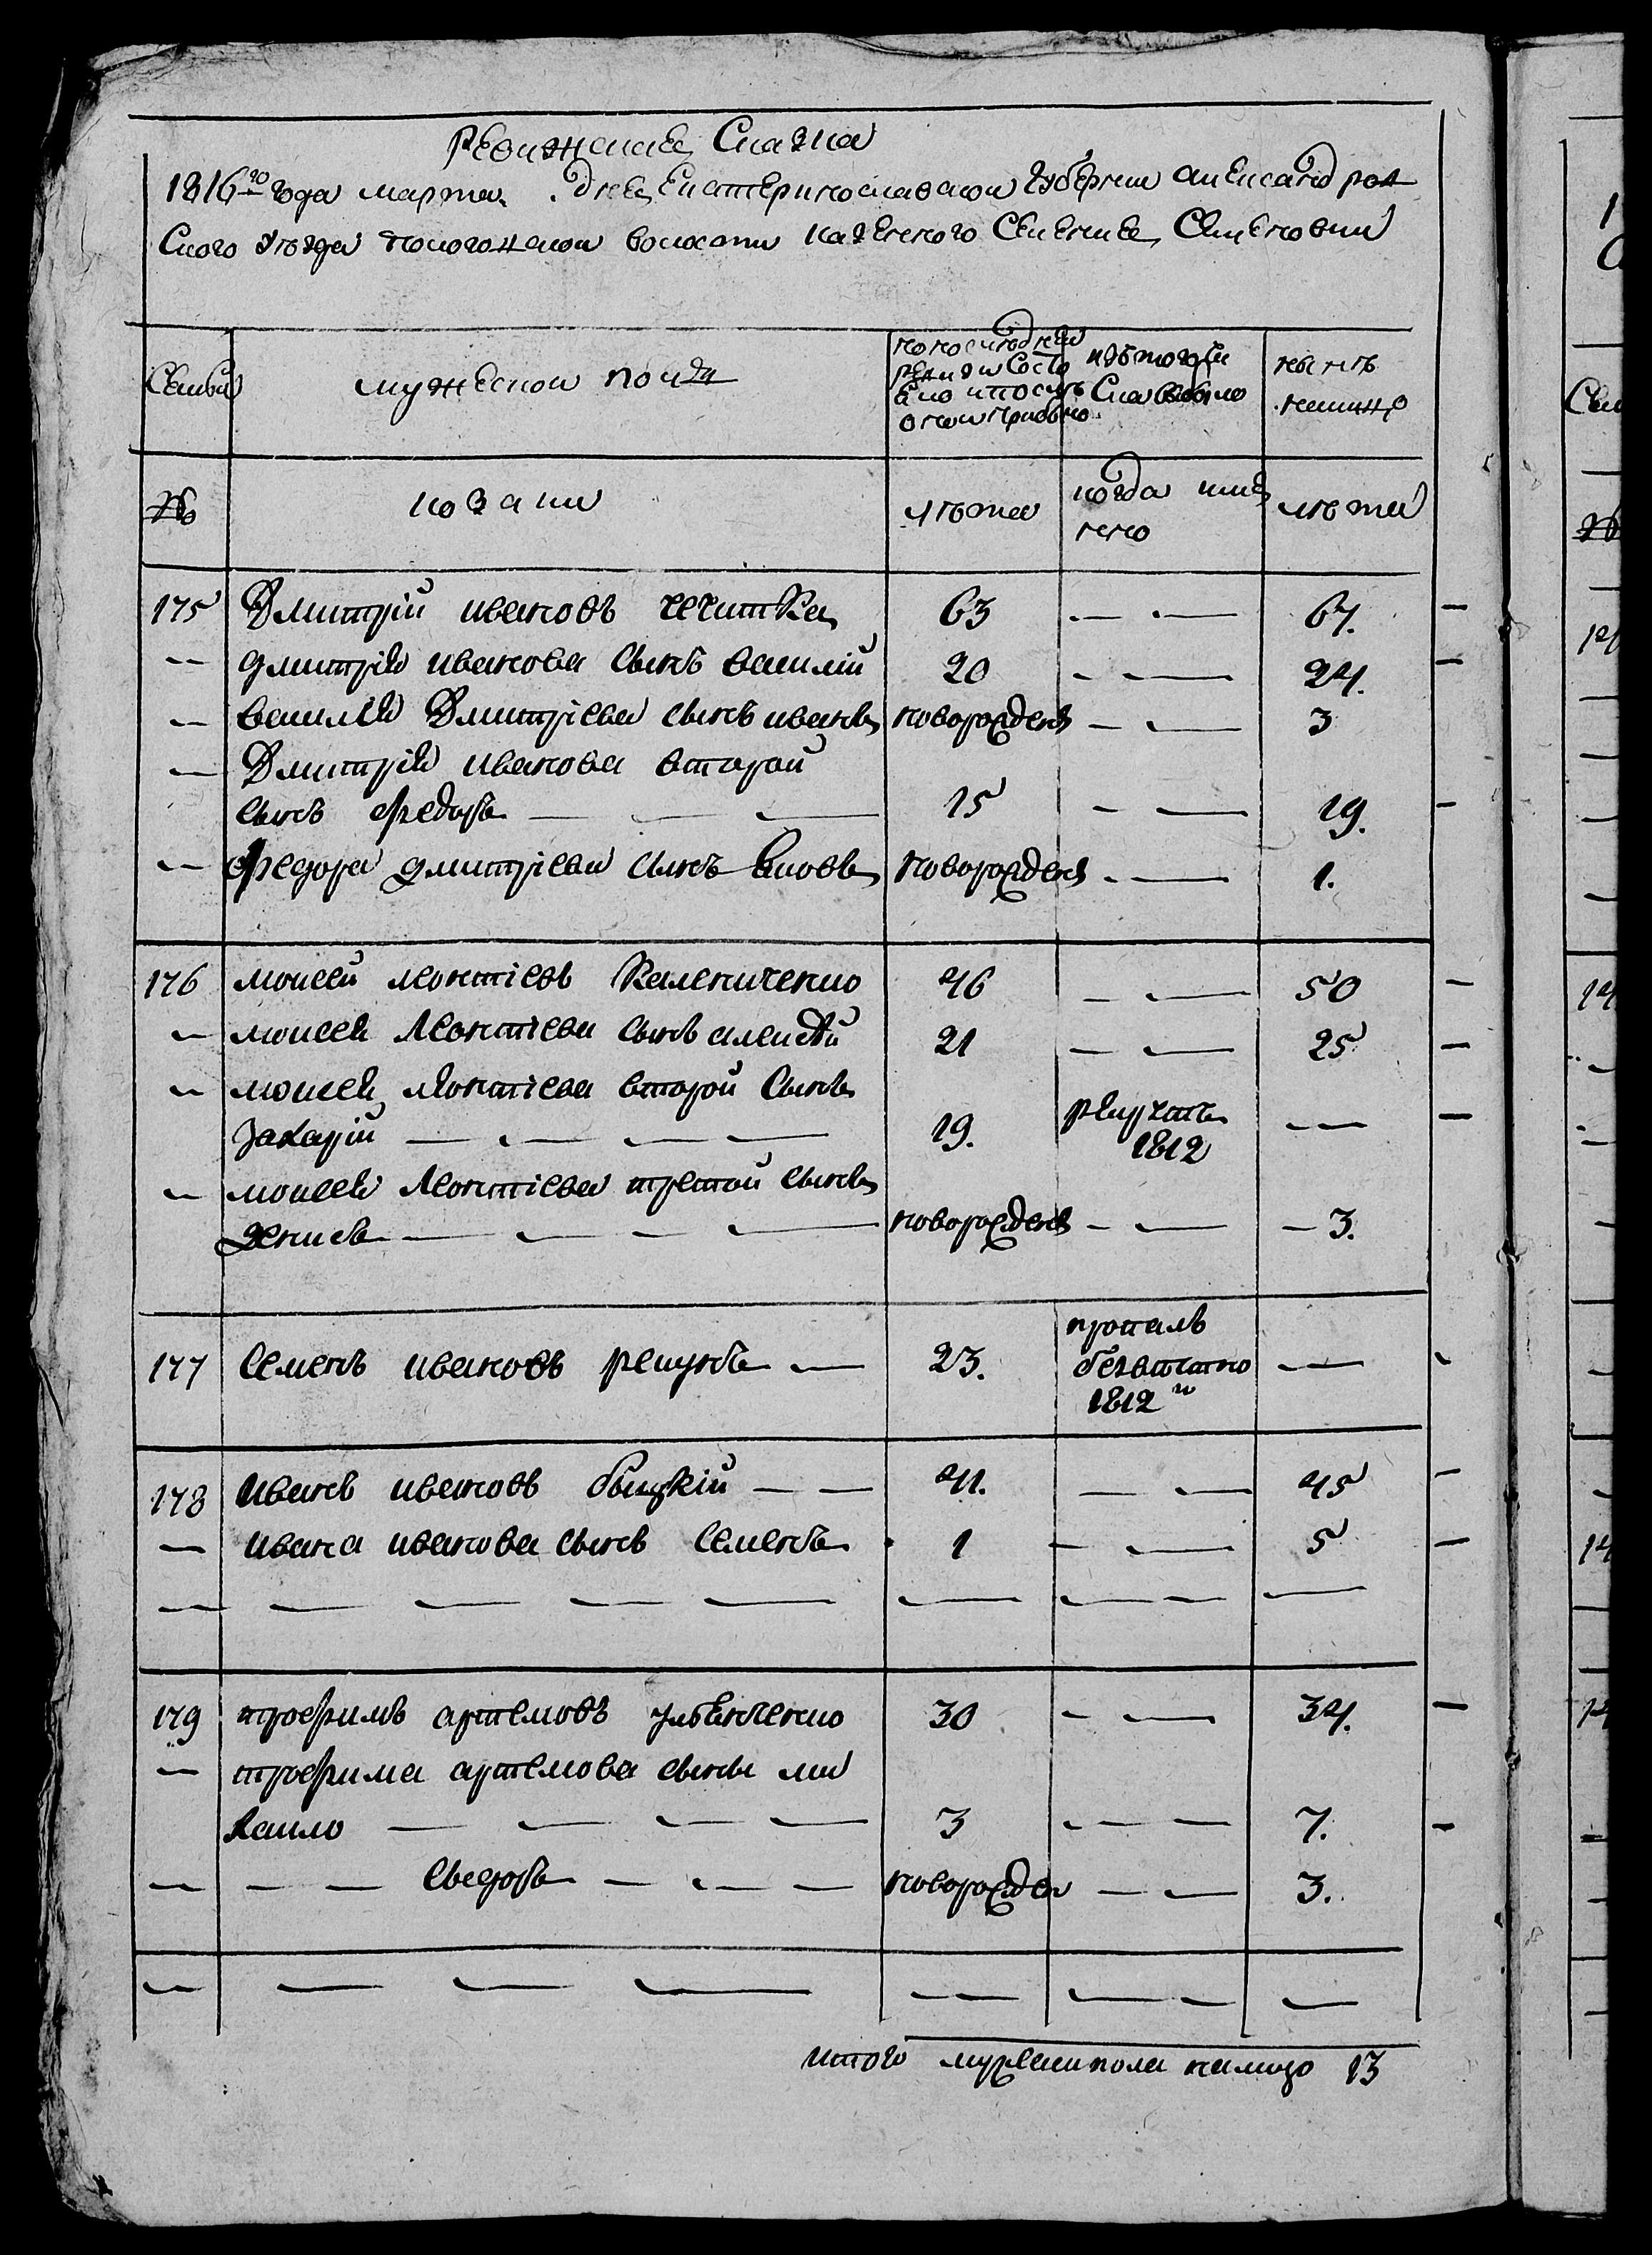 Ревижская Сказка
1816го года марта дня Екатеринославской губернии александров
ского уезда пологожской волости казенного Селения Семеновки
Семьи
мужеской пол
по последней ревизи состо яло и после оной прибыло
изъ того числа выбыло
нынѣ налицо
№
козаки
лѣта
когда имянно
лѣта
175 Дмитрій ивановъ чечитка 63 — — 67.
— дмитрія иванова сынъ василій 20 — — 24.
— василія Дмитріева сынъ иванъ новорожденъ — — 3
— Дмитрія иванова второй
сынъ федоръ — — — 15 — — 19.
— федора дмитріева сынъ яковъ новорожденъ — — 1.
176 моисей леонтіевъ Калениченко 46 — — 50
— моисея Леонтіева сынъ алексѣй 21 — — 25
— моисея леонтіева второй сынъ
Захарій — — — — 19. рекрутъ 1812 —
— моисея Леонтіева третой сынъ
денисъ — — — — новорожденъ — — — 3.
177 Семенъ ивановъ решунъ — 23. пропалъ безвѣстно 1812го —
178 иванъ ивановъ быцкій — — 41. — — 45
— ивана иванова сынъ семенъ 1 — — 5
— — — — — — — — —
179 трофимъ артемовъ ульянченко 30 — — 34.
— трофима артемова сыны ми
хаило — — — — 3 — — — 7.
— — — федоръ — — — новорожден — — 3.
— — — — — — — — —
итого мужеска пола налицо 13